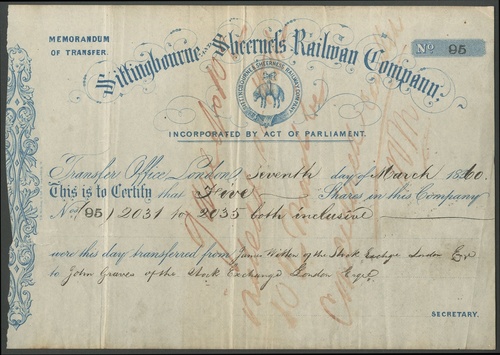 MEMORANDUM
OF TRANSFER.
Sittingbourne and Sheerness Railway Company.
No. 95
SITTINGBOURNE & SHEERNESS RAILWAY COMPANY
INCORPORATED BY ACT OF PARLIAMENT.
Transfer Office, London, Seventh day of March 1860.
This is to Certify that Five Shares in this Company
Nos. 95/2031 to 2035 both inclusive
were this day transferred from James of the Stock Exchange London Esqr
to John Graves of the Stock Exchange London Esqr
SECRETARY.